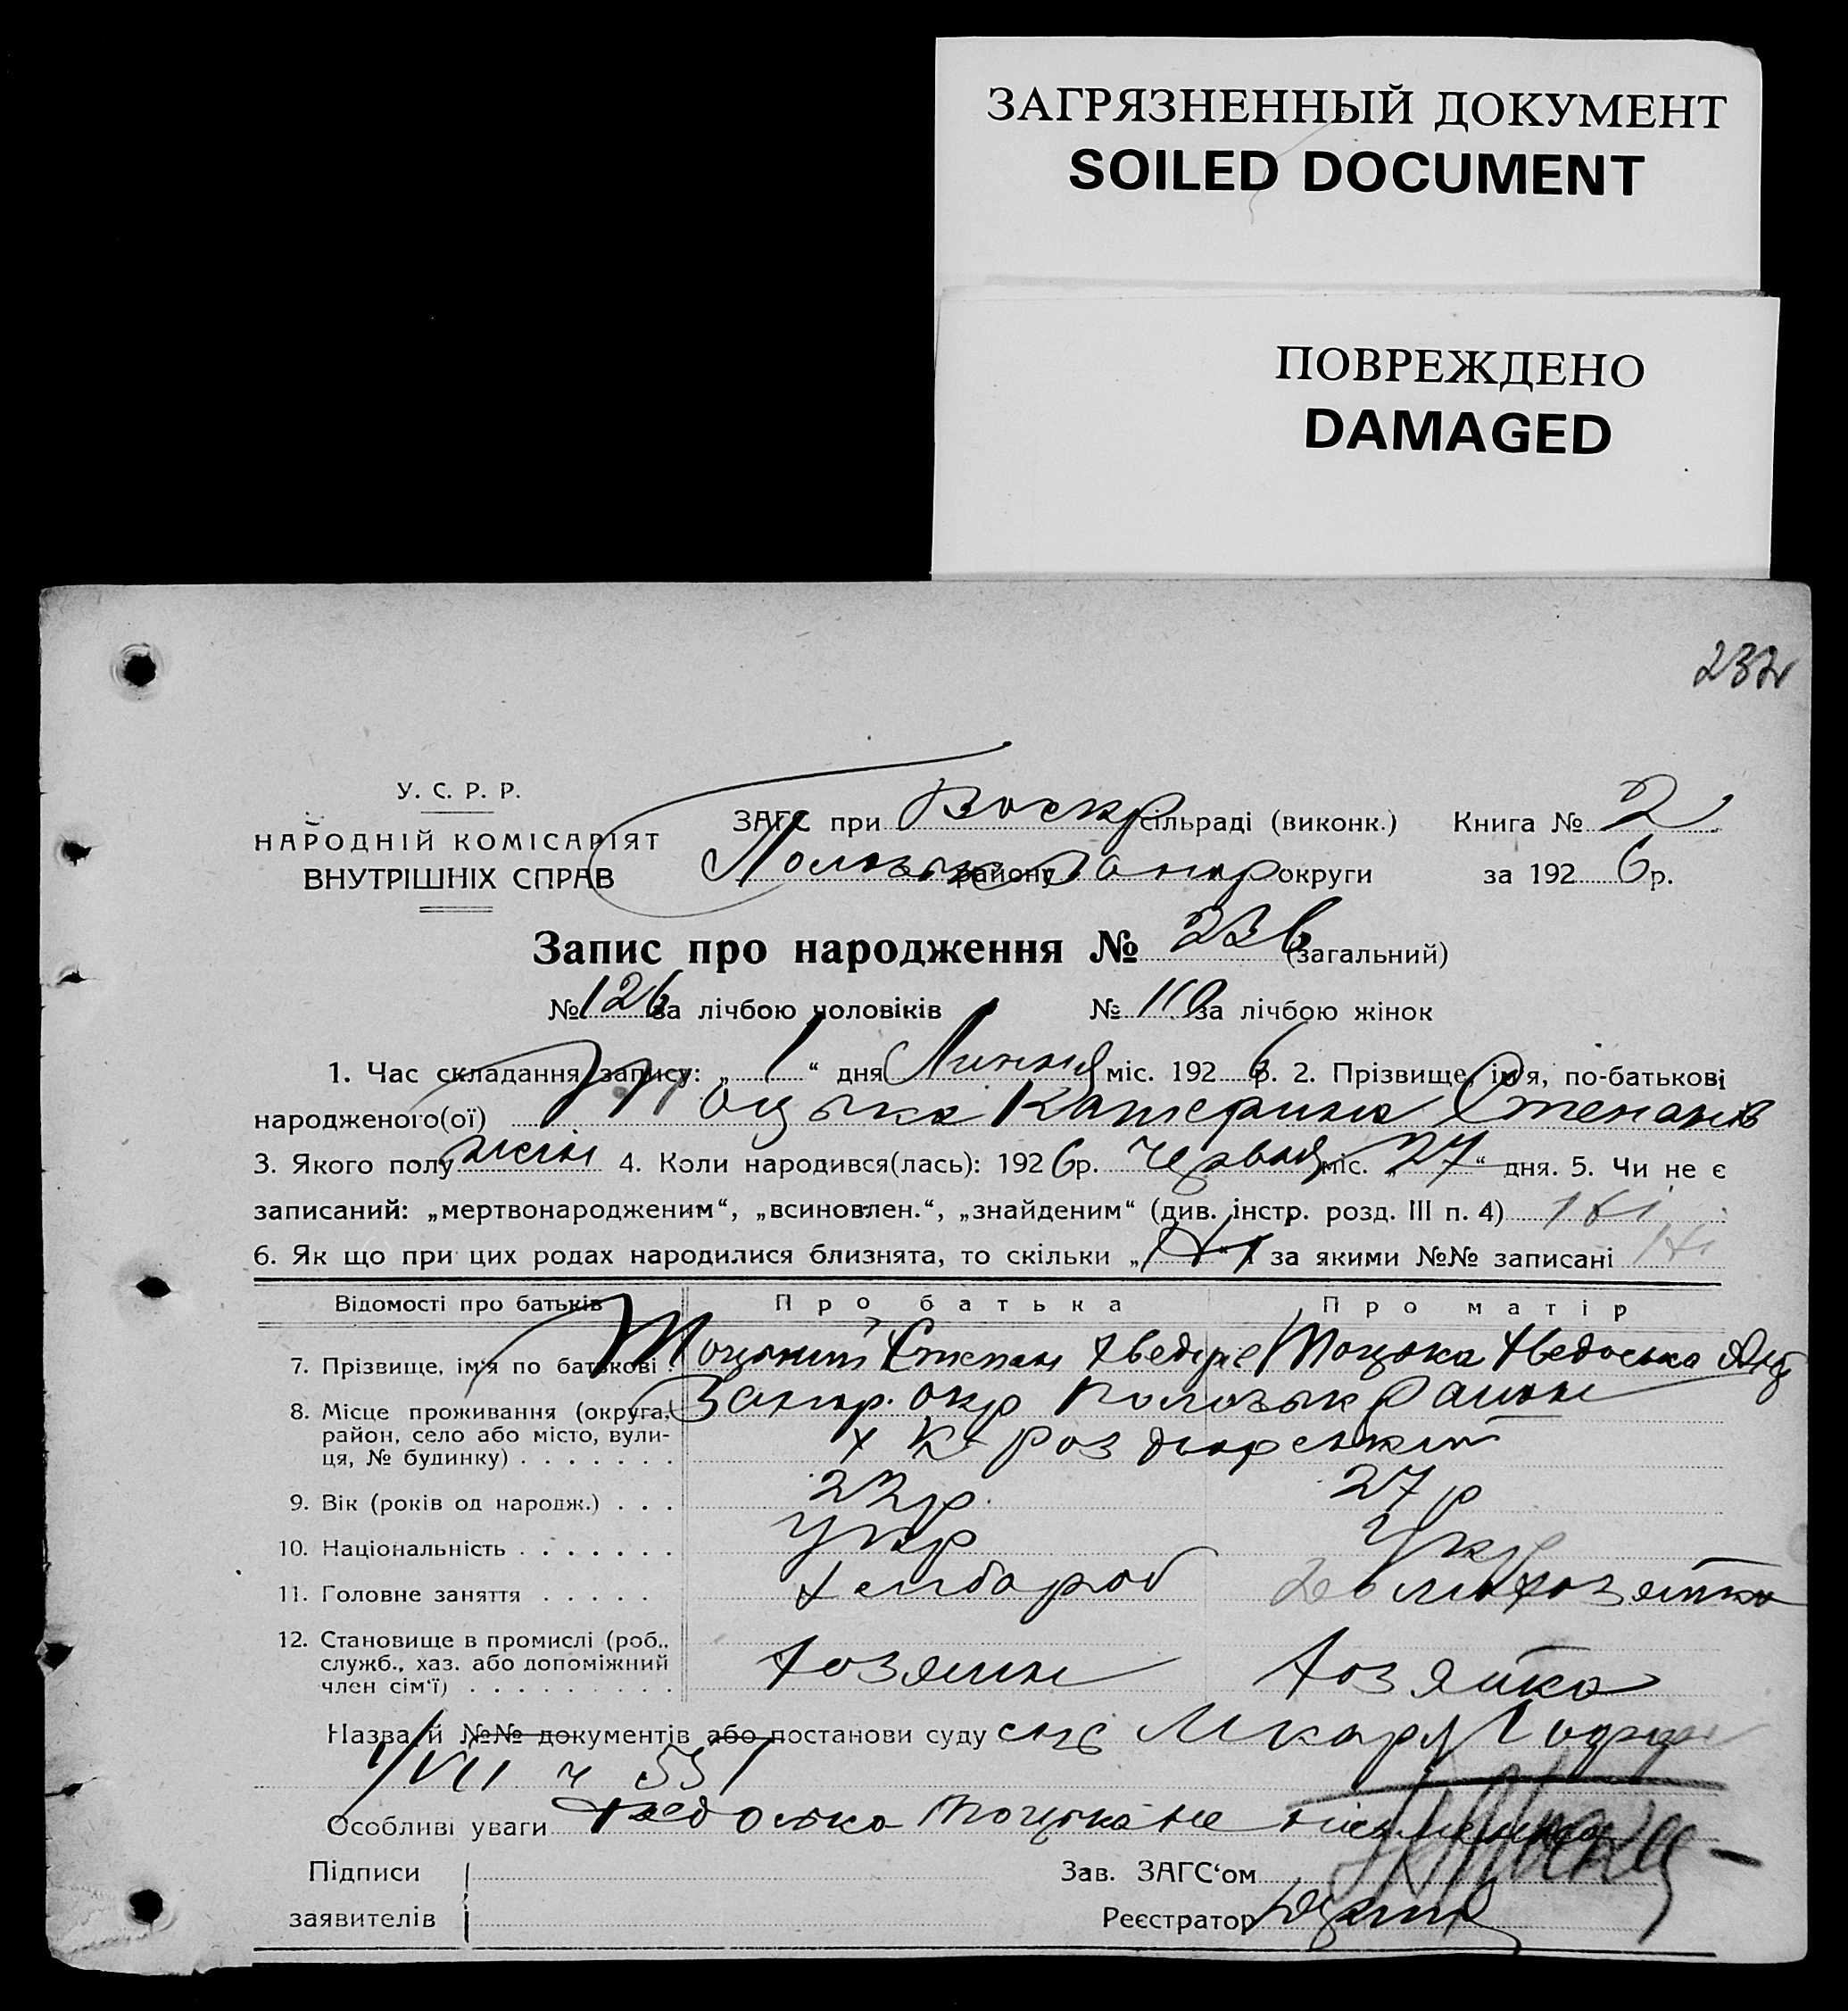 ЗАГРЯЗНЕННЫЙ ДОКУМЕНТ
SOILED DOCUMENT
ПОВРЕЖДЕНО
DAMAGED
232
У. С. Р. Р.
НАРОДНІЙ КОМІСАРІЯТ
ВНУТРІШНІХ СПРАВ
ЗАГС при Воскр сільраді (виконк.) Книга № 2
району округи за 192 6 р.
Запис про народження № 236 (загальний)
№ 126 за лічбою чоловіків № 110 за лічбою жінок
1. Час складання запису: „ 1 “ дня Липня міс. 192 6 р. 2. Прізвище, ім'я, по-батькові
народженого(ої) Тоцька Катерина Степанів
3. Якого полу жін 4. Коли народився(лась): 192 6 р. Червня міс. „ 27 “ дня. 5. Чи не є
записаний: „мертвонародженим“, „всиновлен.“, „знайденим“ (див. інстр. розд. III п. 4)
6. Як що при цих родах народилися близнята, то скільки „ за якими №№ записані
Відомості про батьків Про батька Про матір
7. Прізвище, ім'я по батькові Тоцький Степан Тоцька Хведоська
8. Місце проживання (округа, район, село або місто, вули-ця, № будинку) Запор. окр Район
х
9. Вік (років од народж.) . . . 22 р. 27 р
10. Національність . . . . . . . Укр Укр
11. Головне заняття . . . . . Хлібороб домохозяйка
12. Становище в промислі (роб., служб., хаз. або допоміжний член сім'ї) . . . . . . . . . Хозяин Хозяйка
Назва й №№ документів або постанови суду
1/VII ч 551
Особливі уваги Хведоська Тоцька не письменна
Підписи
заявителів
Зав. ЗАГС'ом
Реєстратор